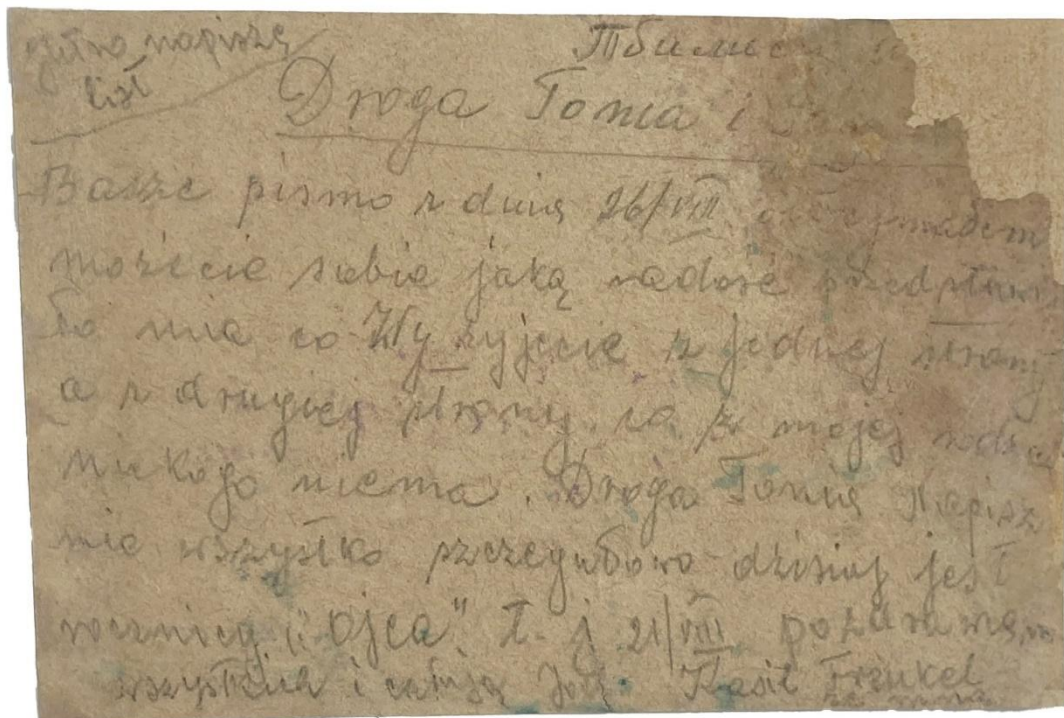 jutro napiszę
list
Тбилиси
Droga Tonia i
Wasze pismo z dnia 26/VII otrzymałem
możecie sobie jaką radość przedstawi
to mia co Wy żyjecie z jednej strony
a z drugiej strony, са z mojej
nikogo niema. Droga Tonia Napisz
mie wszystko szczegułowo dzisiaj jest
rocznicy "Ojca" t. j 21/VIII pozdrawiam
wszystkich i całują Frenkel